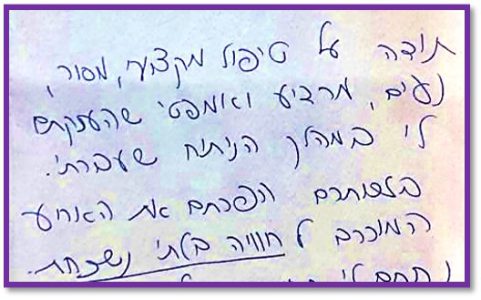 תודה על טיפול מקצועי, מסור,
נעים, מרגיע ואומפטי שהענקתם
לי במהלך הניתוח שעברתי.
בזכותכם הפכתם את האירוע
המוכרם ל חוויה בלתי נשכחת.